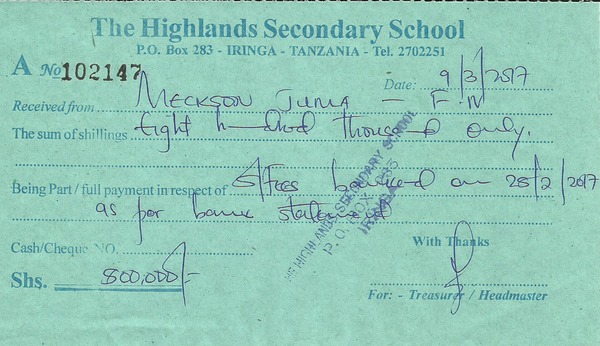 The Highlands Secondary School
P.O. Box 283 - IRINGA - TANZANIA - Tel. 2702251
A No 102147
Date: 9/3/2017
Received from MECKSON JUMA - F.IV
The sum of shillings Eight hundred thousand only.
Being Part / full payment in respect of S/Fees banked on 28/2/2017
as per bank statement
THE HIGHLANDS SECONDARY SCHOOL
P.O. BOX 283
IRINGA
Cash/Cheque NO.
With Thanks
Shs. 800,000/-
For: - Treasurer / Headmaster